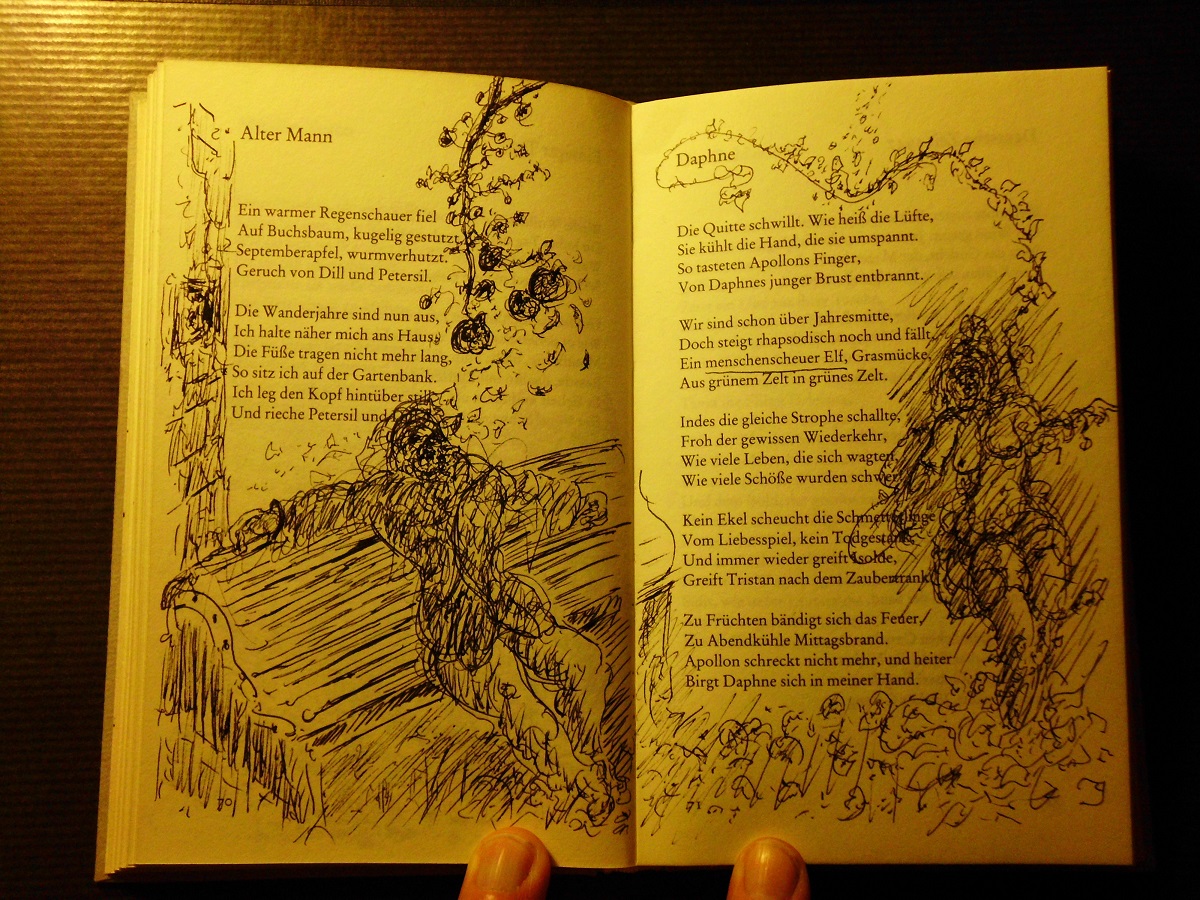 Alter Mann
Ein warmer Regenschauer fiel
Auf Buchsbaum, kugelig gestutzt,
Septemberapfel, wurmverhutzt.
Geruch von Dill und Petersil.
Die Wanderjahre sind nun aus,
Ich halte näher mich ans Haus,
Die Füße tragen nicht mehr lang,
So sitz ich auf der Gartenbank.
Ich leg den Kopf hintüber still
Und rieche Petersil und
Daphne
Die Quitte schwillt. Wie heiß die Lüfte,
Sie kühlt die Hand, die sie umspannt.
So tasteten Apollons Finger,
Von Daphnes junger Brust entbrannt.
Wir sind schon über Jahresmitte,
Doch steigt rhapsodisch noch und fällt,
Ein menschenscheuer Elf, Grasmücke,
Aus grünem Zelt in grünes Zelt.
Indes die gleiche Strophe schallte,
Froh der gewissen Wiederkehr,
Wie viele Leben, die sich wagten,
Wie viele Schöße wurden schwer.
Kein Ekel scheucht die Schmetterlinge
Vom Liebesspiel, kein Todgestank,
Und immer wieder greift Isolde,
Greift Tristan nach dem Zaubertrank.
Zu Früchten bändigt sich das Feuer,
Zu Abendkühle Mittagsbrand.
Apollon schreckt nicht mehr, und heiter
Birgt Daphne sich in meiner Hand.